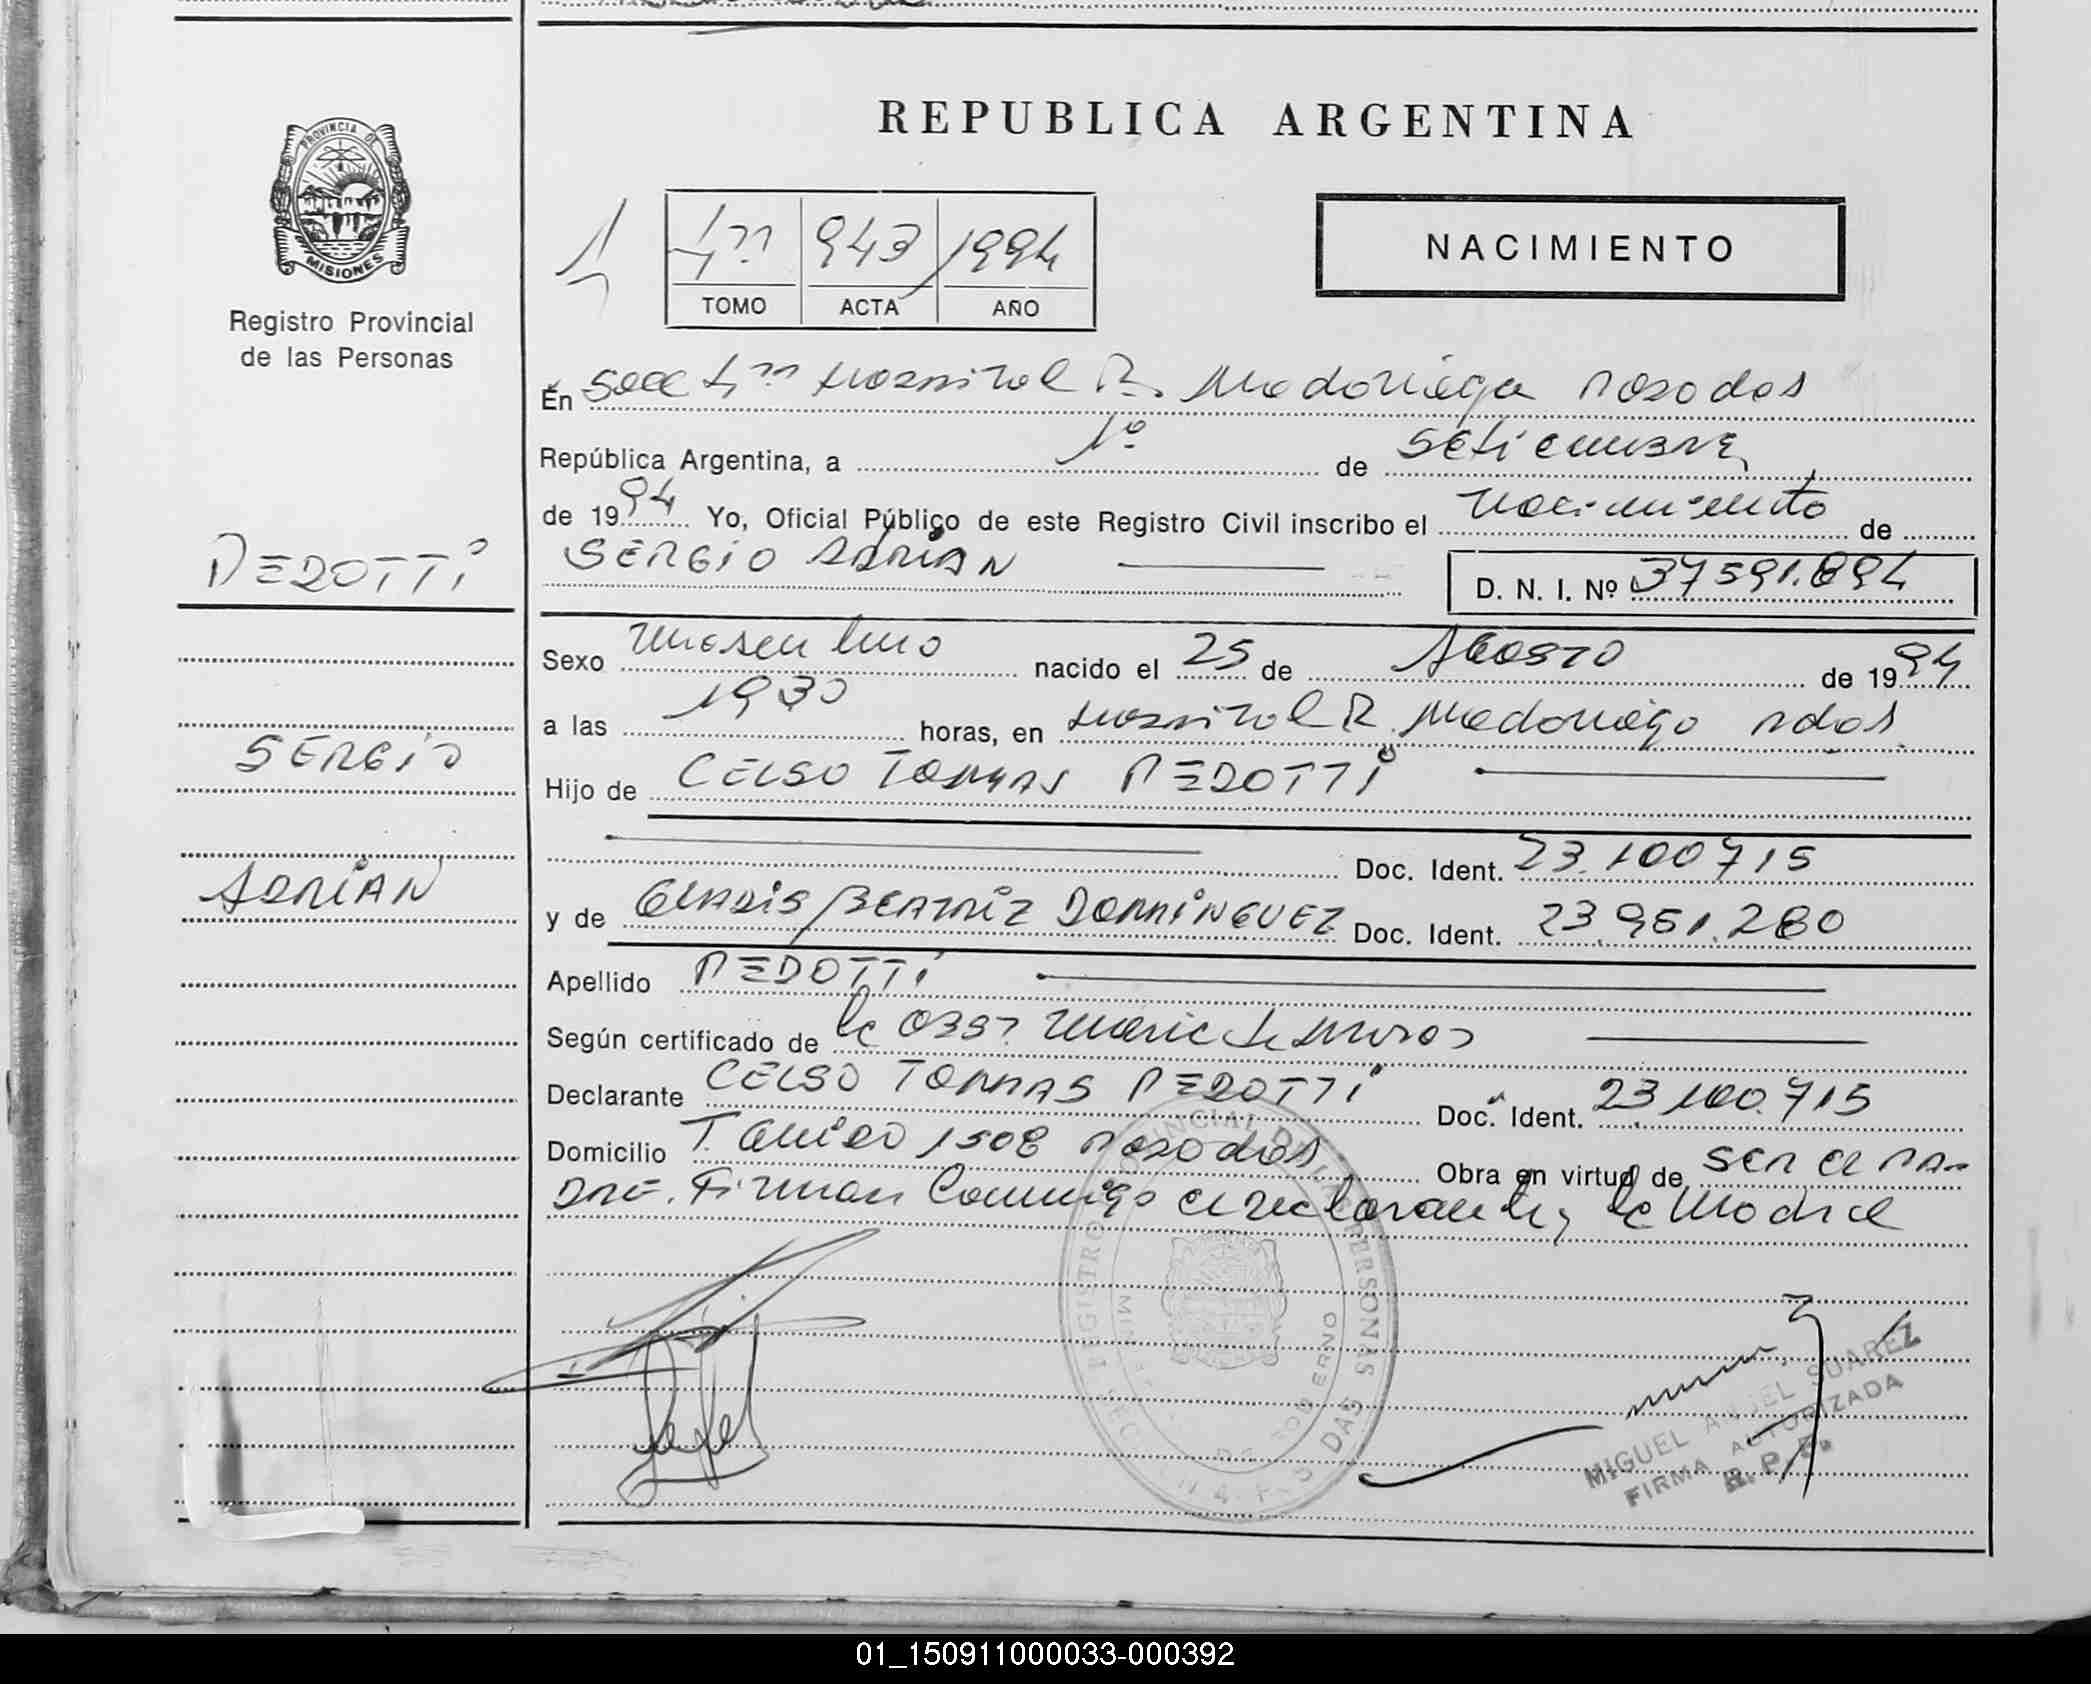 REPUBLICA ARGENTINA
PROVINCIA DE
MISIONES
Registro Provincial
de las Personas
943 1994
TOMO ACTA AÑO
NACIMIENTO
En Secc Hospital R. Madariaga Posadas
República Argentina, a 1º de Setiembre
de 1994 Yo, Oficial Público de este Registro Civil inscribo el Nacimiento de
PEDOTTI
SERGIO ADRIAN
D. N. I. Nº 37591.894
Sexo Masculino nacido el 25 de Agosto de 1994
a las 1930 horas, en Hospital R. Madariaga Pdas
SERGIO
Hijo de CELSO TOMAS PEDOTTI
Doc. Ident. 23.100715
ADRIAN
y de GLADIS BEATRIZ DOMINGUEZ Doc. Ident. 23.951.280
Apellido PEDOTTI
Según certificado de la Obst Maria
Declarante CELSO TOMAS PEDOTTI Doc. Ident. 23.100.715
Domicilio 1508 Posadas Obra en virtud de ser el PA-
DRE. Firman Conmigo el declarante y la Madre
REGISTRO PROVINCIAL DE LAS PERSONAS
MIGUEL ANGEL SUAREZ
FIRMA AUTORIZADA
R. P. P.
01_150911000033-000392